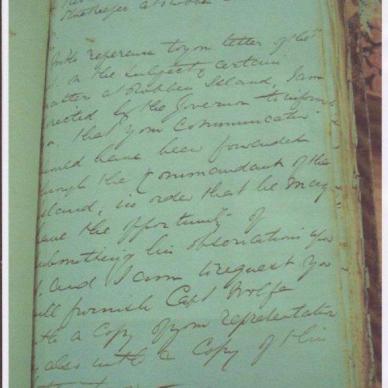 With reference to your letter of the
on the subject of certain
matter at Robben Island, I am
directed by the Governor to inform
that your Communication
should have been forwarded
through the Commandant of the
Island, in order that he may
have the opportunity of
submitting his observations upon
and I am to request you
will furnish Capt Wolfe
with a Copy of your representation
also with a Copy of this